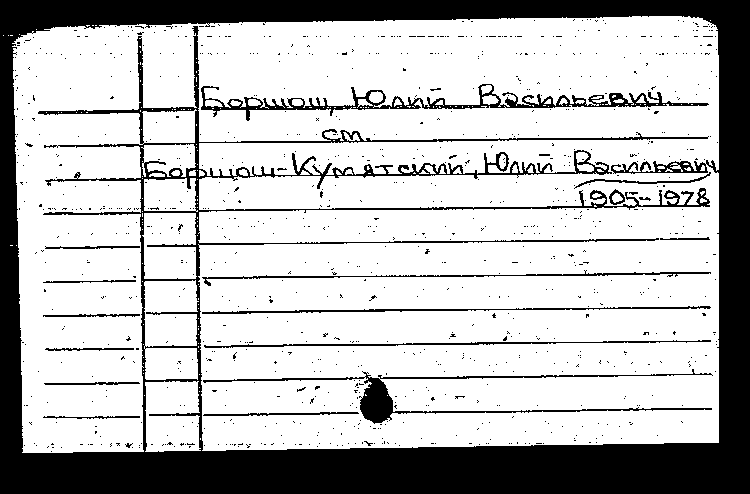 Боршош, Юлий Васильевич.
см.
Боршош-Кумятский, Юлий Васильевич
1905-1978